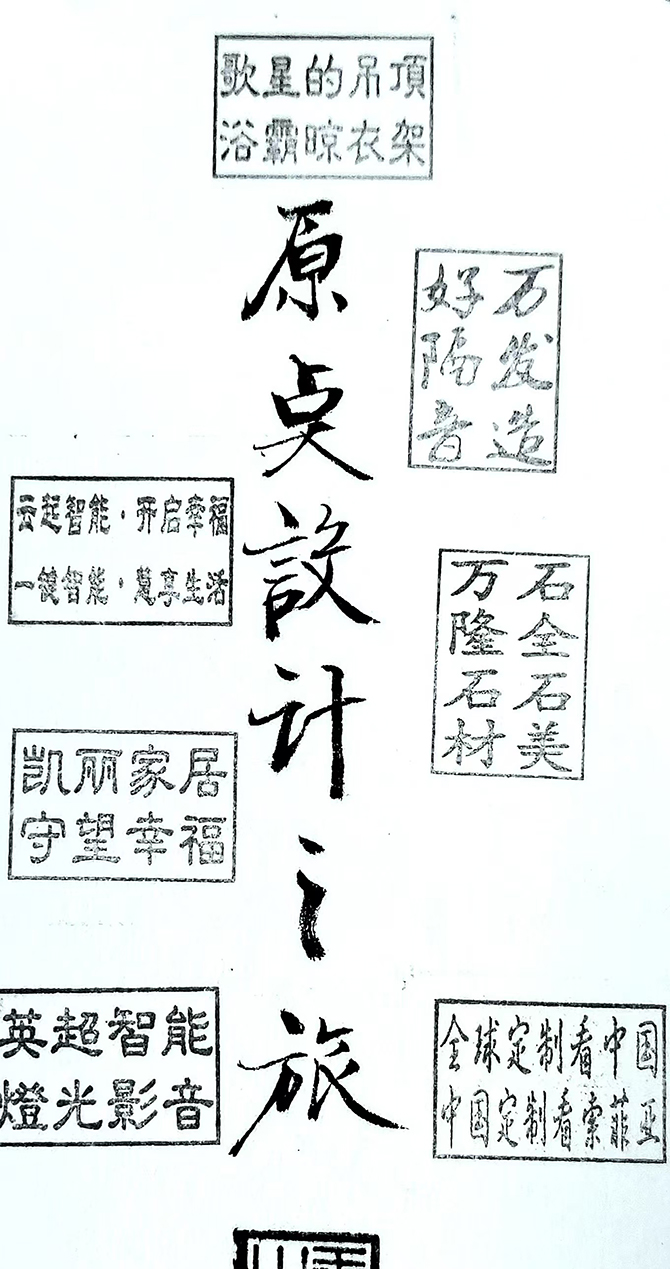 歌星的吊頂
浴霸晾衣架
原点設计之旅
万发造
好隔音
云起智能·开启幸福
一键智能·慧享生活
石全石美
万隆石材
凯丽家居
守望幸福
英超智能
燈光影音
全球定制看中国
中国定制看索菲亚